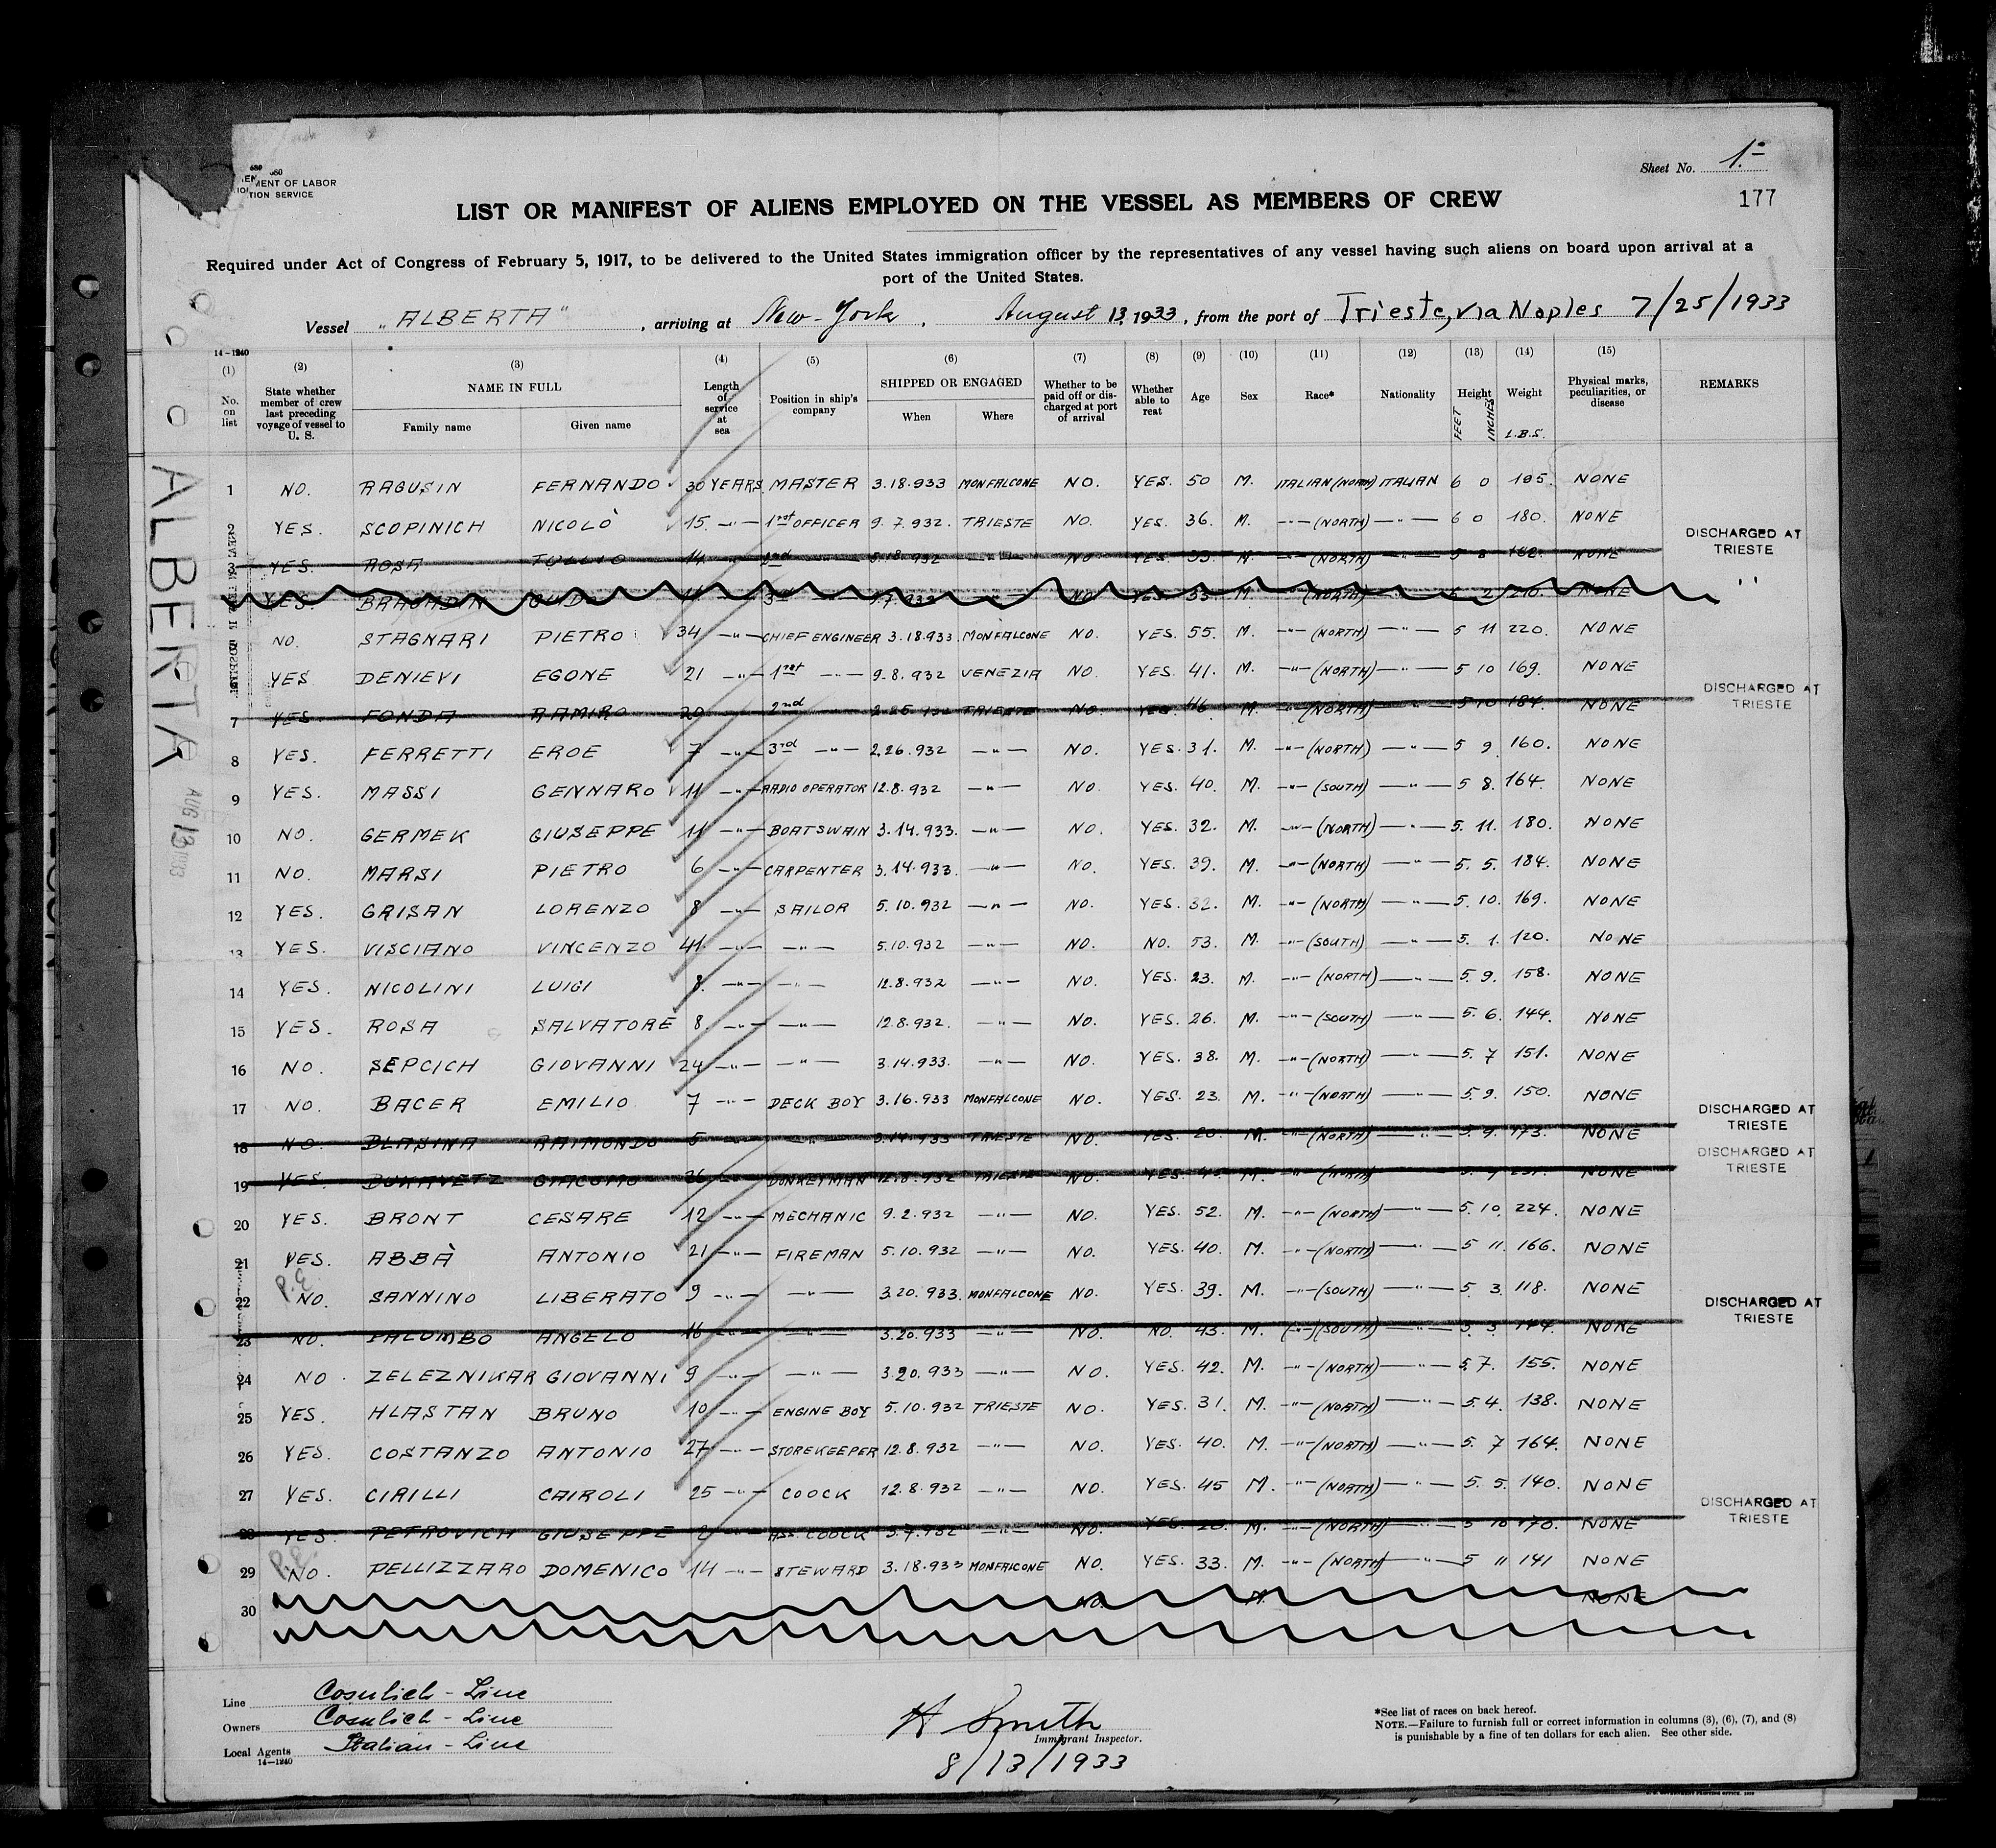 Sheet No. 1.=
177
MENT OF LABOR
TION SERVICE
LIST OR MANIFEST OF ALIENS EMPLOYED ON THE VESSEL AS MEMBERS OF CREW
Required under Act of Congress of February 5, 1917, to be delivered to the United States immigration officer by the representatives of any vessel having such aliens on board upon arrival at a
port of the United States.
Vessel "ALBERTA", arriving at New-York, August 13, 1933, from the port of Trieste, via Naples 7/25/1933
14-1240
(1) (2) (3) (4) (5) (6) (7) (8) (9) (10) (11) (12) (13) (14) (15)
No. on list
State whether member of crew last preceding voyage of vessel to U. S.
NAME IN FULL
Family name Given name
Length of service at sea
Position in ship's company
SHIPPED OR ENGAGED
When Where
Whether to be paid off or discharged at port of arrival
Whether able to reat
Age
Sex
Race*
Nationality
Height
FEET INCHES
Weight
L.B.S.
Physical marks, peculiarities, or disease
REMARKS
1 NO. RAGUSIN FERNANDO 30 YEARS MASTER 3.18.933 MONFALCONE NO. YES. 50 M. ITALIAN (NORTH) ITALIAN 6 0 195. NONE
2 YES. SCOPINICH NICOLÒ 15. -"- 1rst OFFICER 9.7.932. TRIESTE NO. YES. 36. M. -"- (NORTH) -"- 6 0 180. NONE
DISCHARGED AT TRIESTE
3 YES. ROSA TULLIO 14 2nd 5.18.932 -"- NO YES. M. -"- (NORTH) 5 8 NONE
YES. BRAGADIN GUIDO 3rd NO YES. M. -"- (NORTH) 6 2 NONE "
NO. STAGNARI PIETRO 34 -"- CHIEF ENGINEER 3.18.933. MONFALCONE NO. YES. 55. M. -"- (NORTH) -"- 5 11 220. NONE
YES DENIEVI EGONE 21 -"- 1rst -"- 9.8.932 VENEZIA NO. YES. 41. M. -"- (NORTH) -"- 5 10 169. NONE
DISCHARGED AT TRIESTE
7 YES. FONDA RAMIRO 20 2nd 2.26.932 TRIESTE NO. YES. 46. M. -"- (NORTH) 5 10 184. NONE
8 YES. FERRETTI EROE 7 -"- 3rd -"- 2.26.932 -"- NO. YES. 31. M. -"- (NORTH) -"- 5 9 160. NONE
9 YES. MASSI GENNARO 11 -"- RADIO OPERATOR 12.8.932 -"- NO. YES. 40. M. -"- (SOUTH) -"- 5 8. 164. NONE
10 NO. GERMEK GIUSEPPE 11 -"- BOATSWAIN 3.14.933. -"- NO. YES. 32. M. -"- (NORTH) -"- 5. 11. 180. NONE
11 NO. MARSI PIETRO 6 -"- CARPENTER 3.14.933. -"- NO. YES. 39. M. -"- (NORTH) -"- 5. 5. 184. NONE
12 YES. GRISAN LORENZO 8 -"- SAILOR 5.10.932 -"- NO. YES. 32. M. -"- (NORTH) -"- 5. 10. 169. NONE
13 YES. VISCIANO VINCENZO 41. -"- -"- 5.10.932 -"- NO. NO. 53. M. -"- (SOUTH) -"- 5. 1. 120. NONE
14 YES. NICOLINI LUIGI 8. -"- -"- 12.8.932 -"- NO. YES. 23. M. -"- (NORTH) -"- 5. 9. 158. NONE
15 YES. ROSA SALVATORE 8. -"- -"- 12.8.932. -"- NO. YES. 26. M. -"- (SOUTH) -"- 5. 6. 144. NONE
16 NO. SEPCICH GIOVANNI 24 -"- -"- 3.14.933. -"- NO. YES. 38. M. -"- (NORTH) -"- 5. 7 151. NONE
17 NO. BACER EMILIO 7 -"- DECK BOY 3.16.933 MONFALCONE NO. YES. 23. M. -"- (NORTH) -"- 5. 9. 150. NONE
DISCHARGED AT TRIESTE
18 NO. BLASINA RAIMONDO 5 -"- 3.14.933 TRIESTE NO. YES. 20. M. -"- (NORTH) -"- 5. 9. 173. NONE
DISCHARGED AT TRIESTE
19 YES. BUKAVETZ GIACOMO 36 DONKEYMAN 12.8.932 TRIESTE NO. YES. M. -"- (NORTH) NONE
20 YES. BRONT CESARE 12 -"- MECHANIC 9.2.932 -"- NO. YES. 52. M. -"- (NORTH) -"- 5. 10. 224. NONE
21 YES. ABBÀ ANTONIO 21 -"- FIREMAN 5.10.932 -"- NO. YES. 40. M. -"- (NORTH) -"- 5 11. 166. NONE
P.E
22 NO. SANNINO LIBERATO 9 -"- -"- 3.20.933. MONFALCONE NO. YES. 39. M. -"- (SOUTH) -"- 5. 3. 118. NONE
DISCHARGED AT TRIESTE
23 NO. PALUMBO ANGELO 16 -"- -"- 3.20.933 -"- NO. NO. 43. M. (-"-) (SOUTH) -"- 5. 3. 144. NONE
24 NO. ZELEZNIKAR GIOVANNI 9 -"- -"- 3.20.933 -"- NO. YES. 42. M. -"- (NORTH) -"- 5. 7. 155. NONE
25 YES. HLASTAN BRUNO 10 -"- ENGINE BOY 5.10.932 TRIESTE NO. YES. 31. M. -"- (NORTH) -"- 5. 4. 138. NONE
26 YES. COSTANZO ANTONIO 27 -"- STOREKEEPER 12.8.932 -"- NO. YES. 40. M. -"- (NORTH) -"- 5. 7 164. NONE
27 YES. CIRILLI CAIROLI 25 -"- COOCK 12.8.932 -"- NO. YES. 45 M. -"- (NORTH) -"- 5. 5. 140. NONE
DISCHARGED AT TRIESTE
28 YES. PETROVICH GIUSEPPE 2 -"- ASS. COOCK 3.7.932 -"- NO. YES. 20. M. -"- (NORTH) -"- 5 10 170. NONE
P.E
29 NO. PELLIZZARO DOMENICO 14 -"- STEWARD 3.18.933 MONFALCONE NO. YES. 33. M. -"- (NORTH) -"- 5 11 141 NONE
30 NO. M. NONE
ALBERTA
AUG 13 1933
Line Cosulich-Line
Owners Cosulich-Line
Local Agents Italian-Line
14-1240
H Smith
Immigrant Inspector.
8/13/1933
*See list of races on back hereof.
NOTE.—Failure to furnish full or correct information in columns (3), (6), (7), and (8)
is punishable by a fine of ten dollars for each alien. See other side.